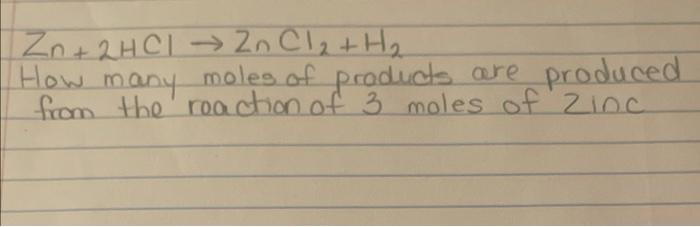 Zn + 2HCl → ZnCl₂ + H₂
How many moles of products are produced
from the reaction of 3 moles of Zinc